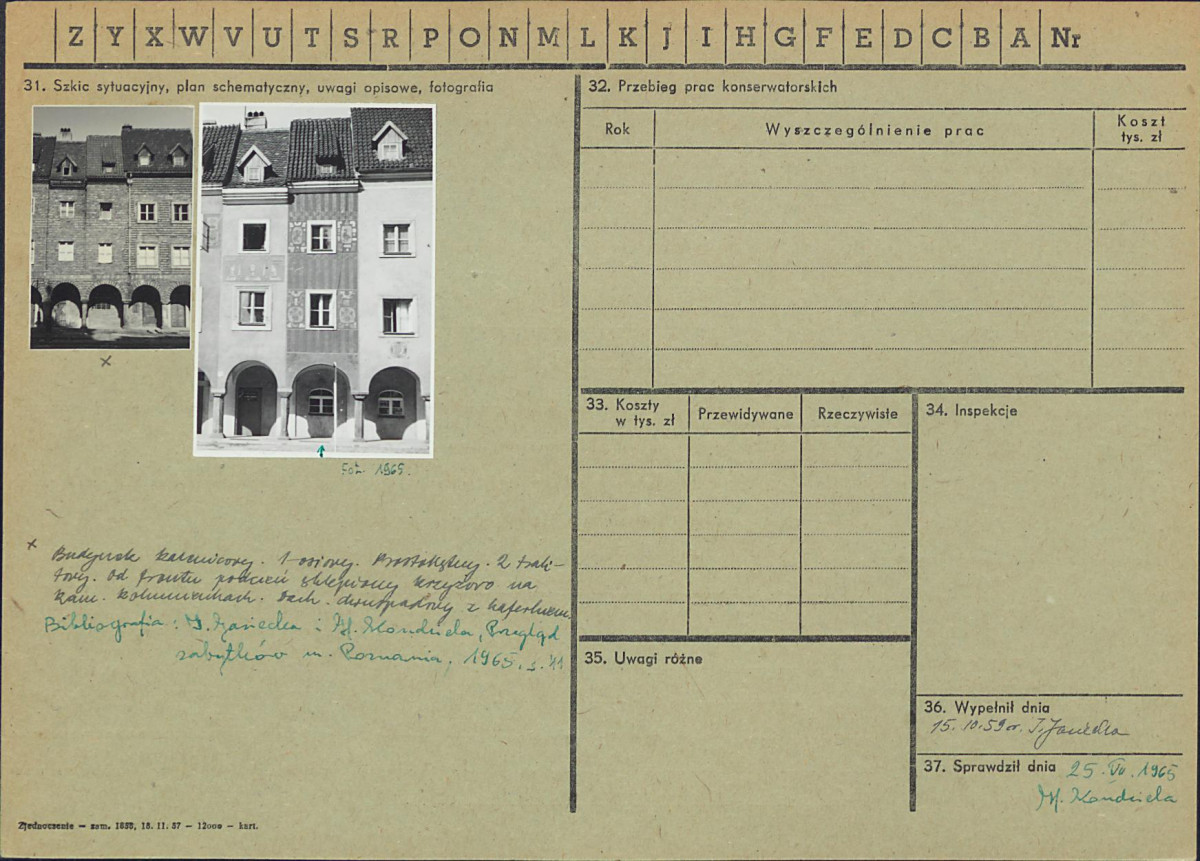 Z Y X W V U T S R P O N M L K J I H G F E D C B A Nr
31. Szkic sytuacyjny, plan schematyczny, uwagi opisowe, fotografia
x
Fot. 1965.
x Budynek kamienicowy. 1-osiowy. Prostokątny. 2 trak-
towy. Od frontu podcień sklepiony krzyżowo na
kam. kolumienkach. Dach dwuspadowy z kaferkiem.
Bibliografia: I. Jasiecka i H. Kondziela, Przegląd
zabytków m. Poznania, 1965, s. 41
Zjednoczenie — zam. 1858, 18. 11. 57 — 12000 — kart.
32. Przebieg prac konserwatorskich
Rok Wyszczególnienie prac Koszt
tys. zł
33. Koszty
w tys. zł Przewidywane Rzeczywiste
34. Inspekcje
35. Uwagi różne
36. Wypełnił dnia
15. 10. 59 r.
37. Sprawdził dnia 25. VII. 1965
H. Kondziela